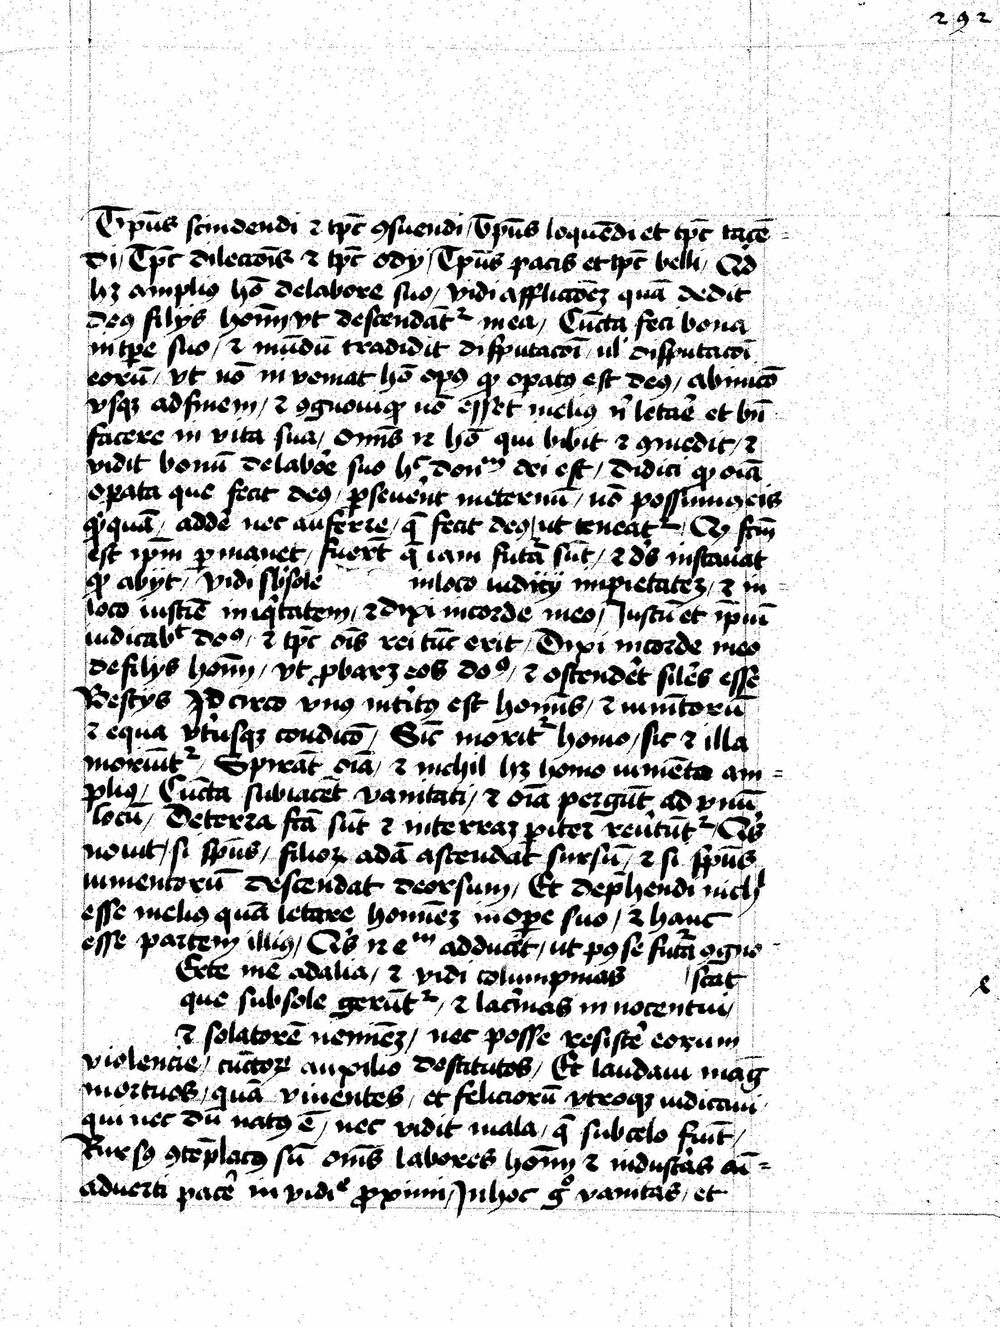 292
Tp̄us scindendi ⁊ tp̄c ꝯsuendi / Tp̄us loquēdi et tp̄c tacē=
di / Tp̄c dilectiōis ⁊ tp̄c odij / Tp̄us pacis et tp̄c belli / Qd̛
hꝫ ampliꝰ hō de labore suo / vidi afflictōeꝫ quā dedit
deꝰ filijs hoīm vt descendāt᷑ in ea / Cūcta fecit bona
in tꝑe suo / ⁊ mūdū tradidit disputacōi / ul̛ disputacōi
eorū / vt nō inveniat hō opꝰ qꝫ oꝑatꝰ est deꝰ / ab inicō
vsqꝫ ad finem / ⁊ ꝯgnoui qꝫ nō esset meliꝰ n̛ letar̄e et bn̄
facere in vita sua / om̄is n̄ hō qui bibit ⁊ ꝯmedit / ⁊
vidit bonū de labor̄e suo hᶜ donū dei est / Didici qꝫ oīa
oꝑata que fecit deꝰ / ꝑseuer̄nt in eternū / nō possumꝰ eis
qꝫquā / adder̄e nec auferre / q̄ fecit deꝰ / ut timeat᷑ / Qꝫ fc̄m
est ip̄m ꝑmanet / fuer̄t q̄ iam futā sūt / ⁊ dˢ instaurat
qꝫ abijt / Vidi sb̛ sole in loco iudicij impietateꝫ / ⁊ in
loco iustīe iniqͥtatem / ⁊ dixi in corde meo / Justū et īpiū
iudicabᵗ deꝰ / ⁊ tp̄c oīs rei tūc erit / Dixi in corde meo
de filijs hoīm / vt ꝓbarꝫ eos deꝰ / ⁊ ostender̄t silēs esse
Bestijs Id circo vnꝰ int̛itꝰ est hoīnis / ⁊ iumētorū
⁊ equa vtͥusqꝫ condicō / Sic̄ morit᷑ homo / sic ⁊ illa
moriūt᷑ / Spirāt oīa / ⁊ nichil hꝫ homo iumēto am=
pliꝰ / Cūcta subiacēt vanitati / ⁊ oīa pergūt ad vnū
locū / De terra fc̄ā sūt ⁊ in terraꝫ ꝑiter reưtūt᷑ / Qͥs
nouit / si sp̄us / filioꝝ adā ascendat sursū / ⁊ si sp̄us
iumentorū descendat deorsum / Et dep̄hendi nichl̛
esse meliꝰ quā letare homīeꝫ in oꝑe suo / ⁊ hanc
esse partem illiꝰ / Qͥs n̄ eᵐ adducet / ut pꝰ se futā ꝯgno
Uerte mē ad alia / ⁊ vidi calumpnias /scat
que sub sole gerūt᷑ / ⁊ lacͥmas innocentui /
⁊ solatorē neminēꝫ / nec posse resister̄e eorum
violencie / cūctoꝝ auxilio destitutos / Et laudaui maḡ
mortuos / quā viuentes / et feliciorū vtroqꝫ iudicaui
qui nec dū natꝰ ē / nec vidit mala / q̄ sub celo fiūt /
Rursꝰ ꝯtēplatꝰ sū om̄s labores hoīm ⁊ industͥas aī=
aduerti pater̄e inuidiᵉ ꝓximi / In hoc gͦ vanitas / et